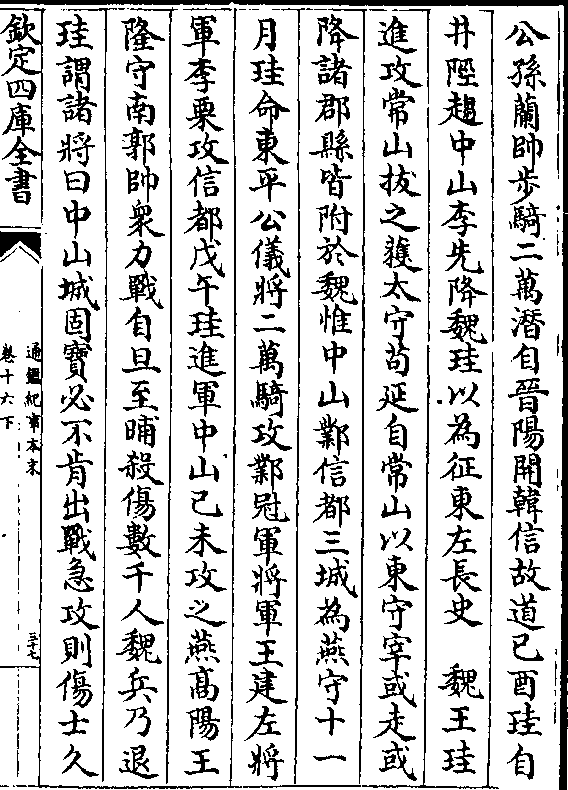 公孫蘭帥步騎二萬潛自晉陽開韓信故道己酉珪自
井陘趨中山李先降魏珪以為征東左長史　魏王珪
進攻常山拔之獲太守苟延自常山以東守宰或走或
降諸郡縣皆附於魏惟中山鄴信都三城為燕守十一
月珪命東平公儀將二萬騎攻鄴冠軍將軍王建左將
軍李栗攻信都戊午珪進軍中山己未攻之燕髙陽王
隆守南郭帥衆力戰自旦至晡殺傷數千人魏兵乃退
珪謂諸將曰中山城固寶必不肯出戰急攻則傷士久
欽定四庫全書
通鑑紀事本末
卷十六下
三十七